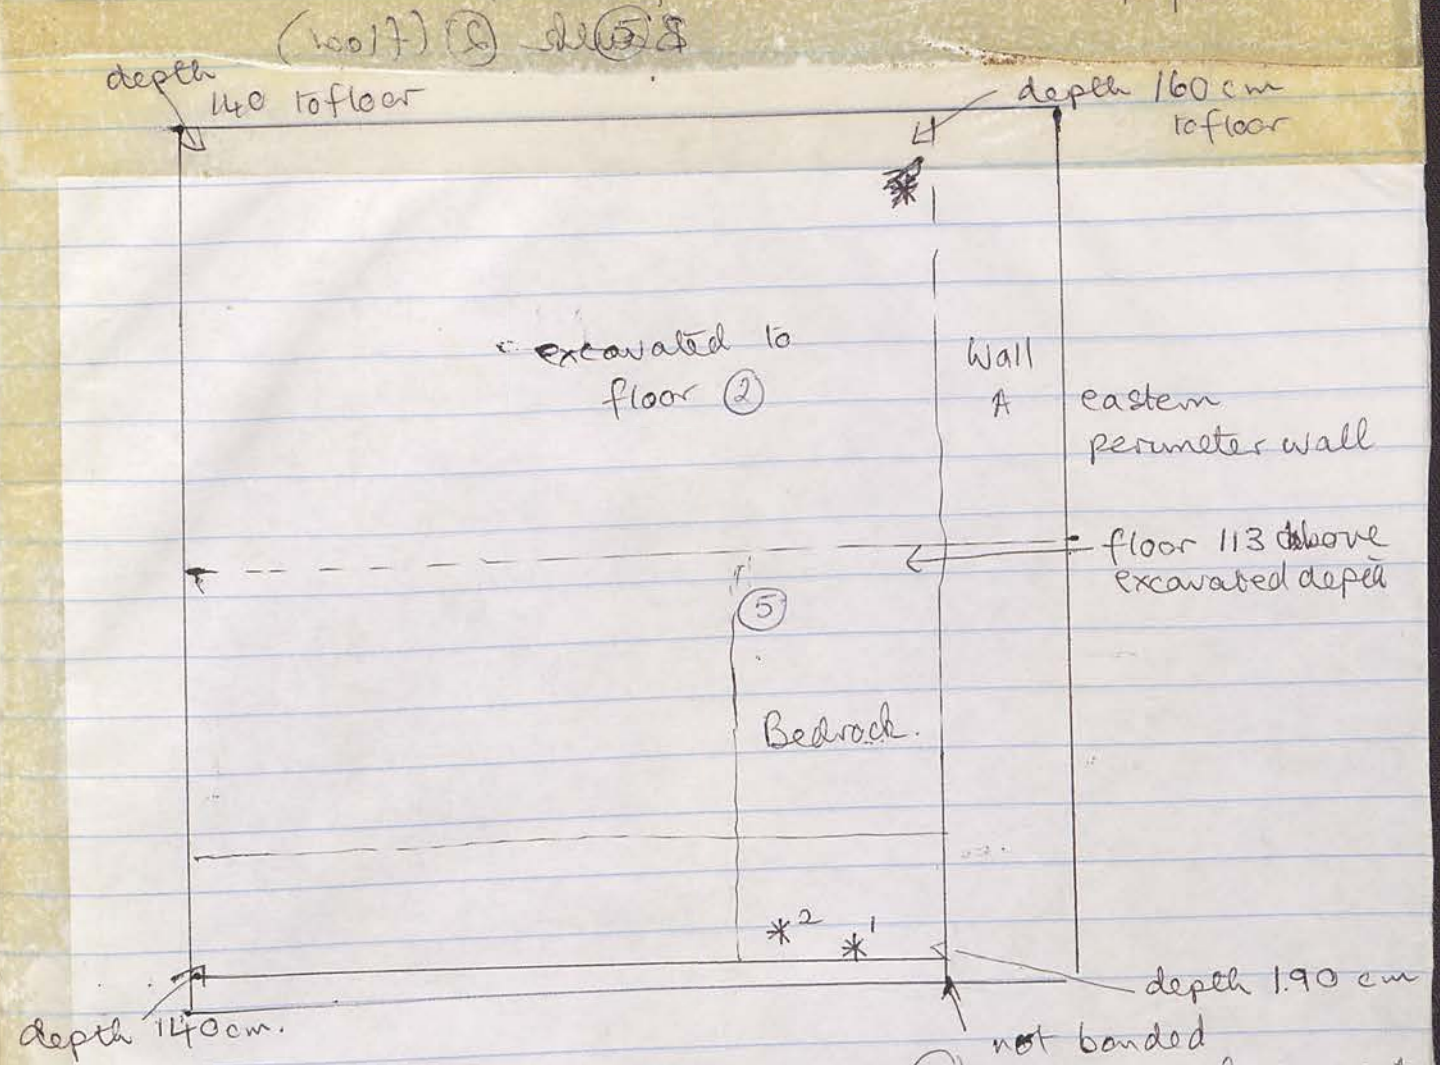 depth
140 to floor
depth 160 cm
to floor
excavated to
floor ②
Wall
A
eastern
perimeter wall
floor 113 above
excavated depth
⑤
Bedrock.
*2
*1
depth 140cm.
depth 1.90 cm
not bonded